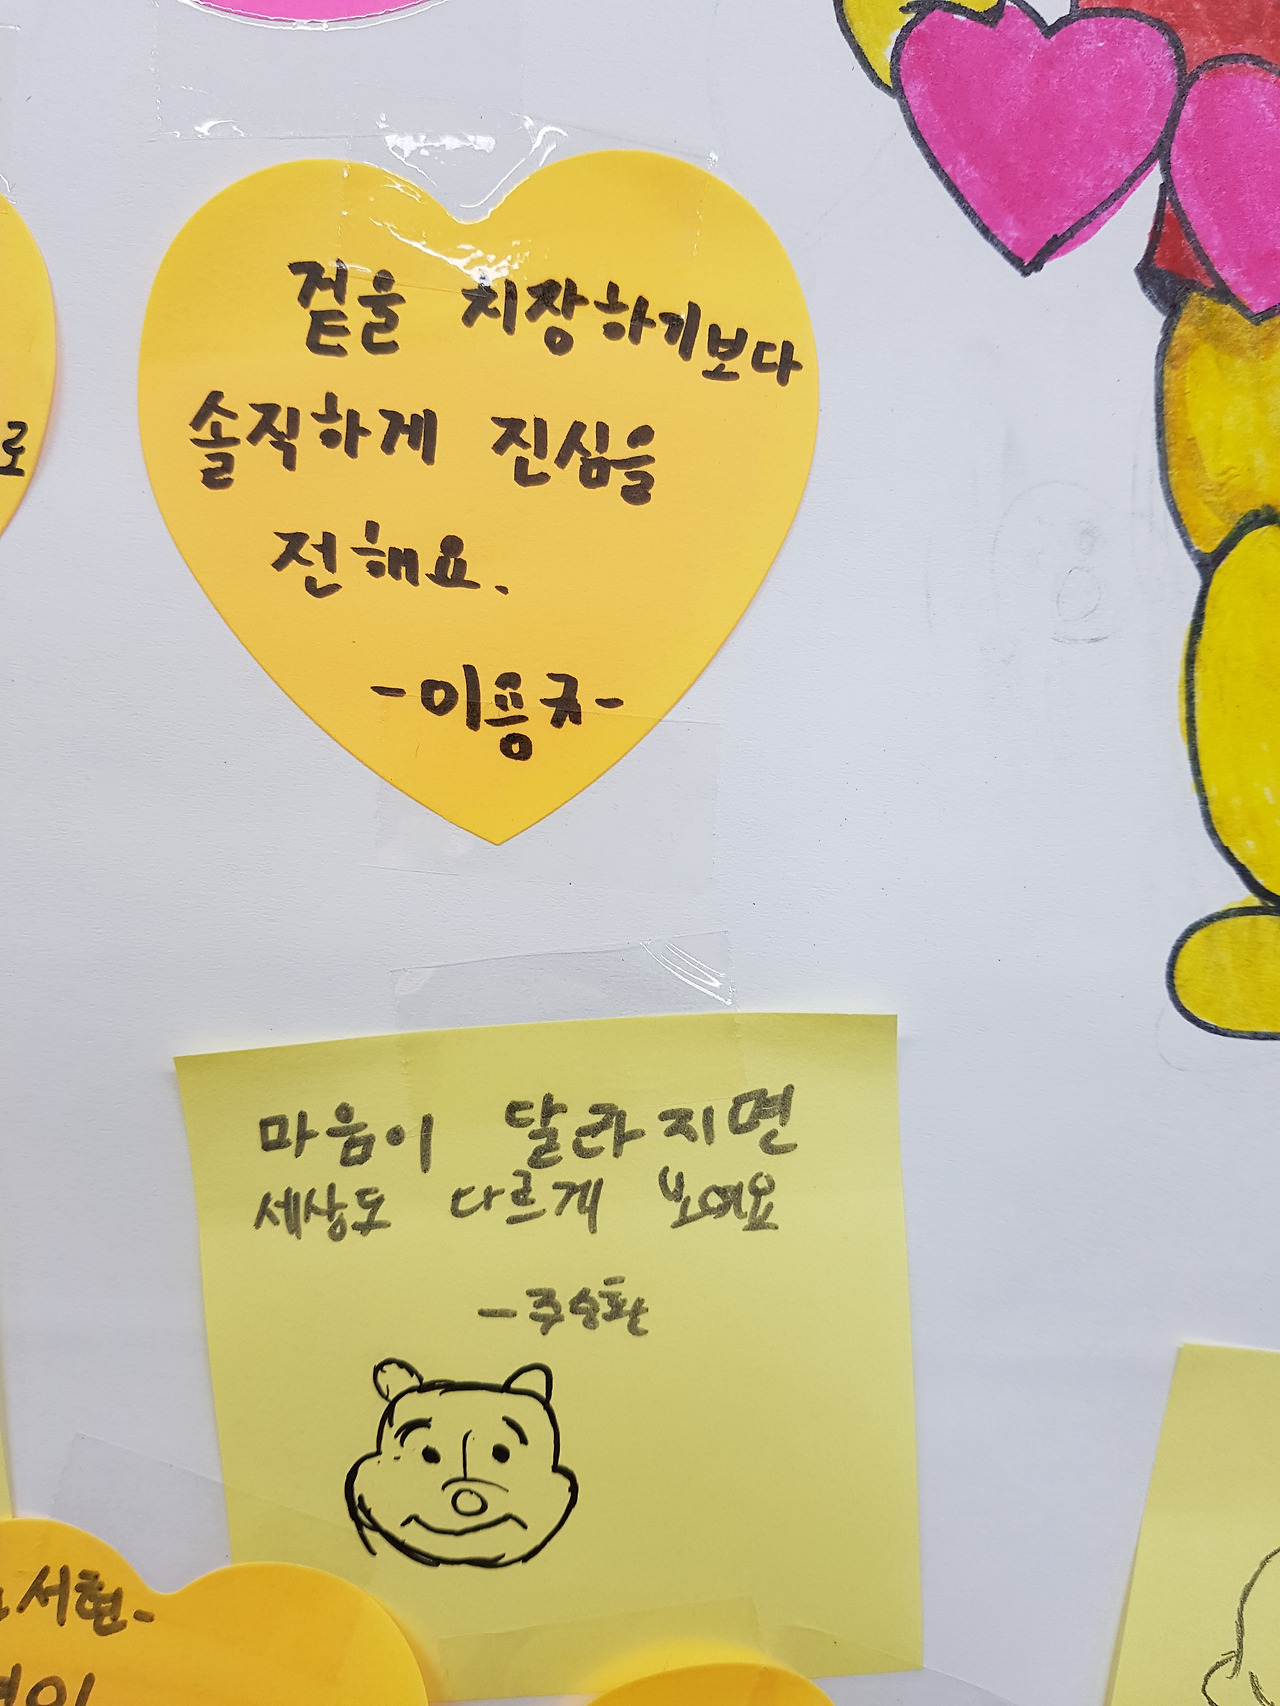 겉을 치장하기보다
솔직하게 진심을
전해요.
-이용규-
로
마음이 달라지면
세상도 다르게 보여요
-주승환
서현-